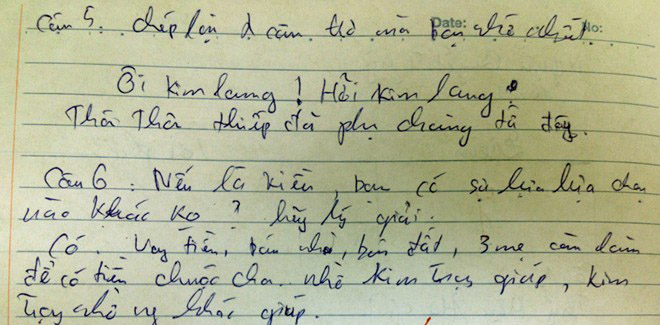 Câu 5. chép lại 2 câu thơ mà bạn nhớ nhất. Date: No:
Ôi kim lang! Hỡi kim lang
Thôi Thôi thiếp đã phụ chàng từ đây.
Câu 6: Nếu là kiều, bạn có sự lựa lựa chọn
nào khác ko? hãy lý giải.
Có. Vay tiền, bán nhà, bán đất, 3 mẹ con làm
để có tiền chuộc cha. nhờ kim trọng giúp, kim
trọng nhờ ng khác giúp.